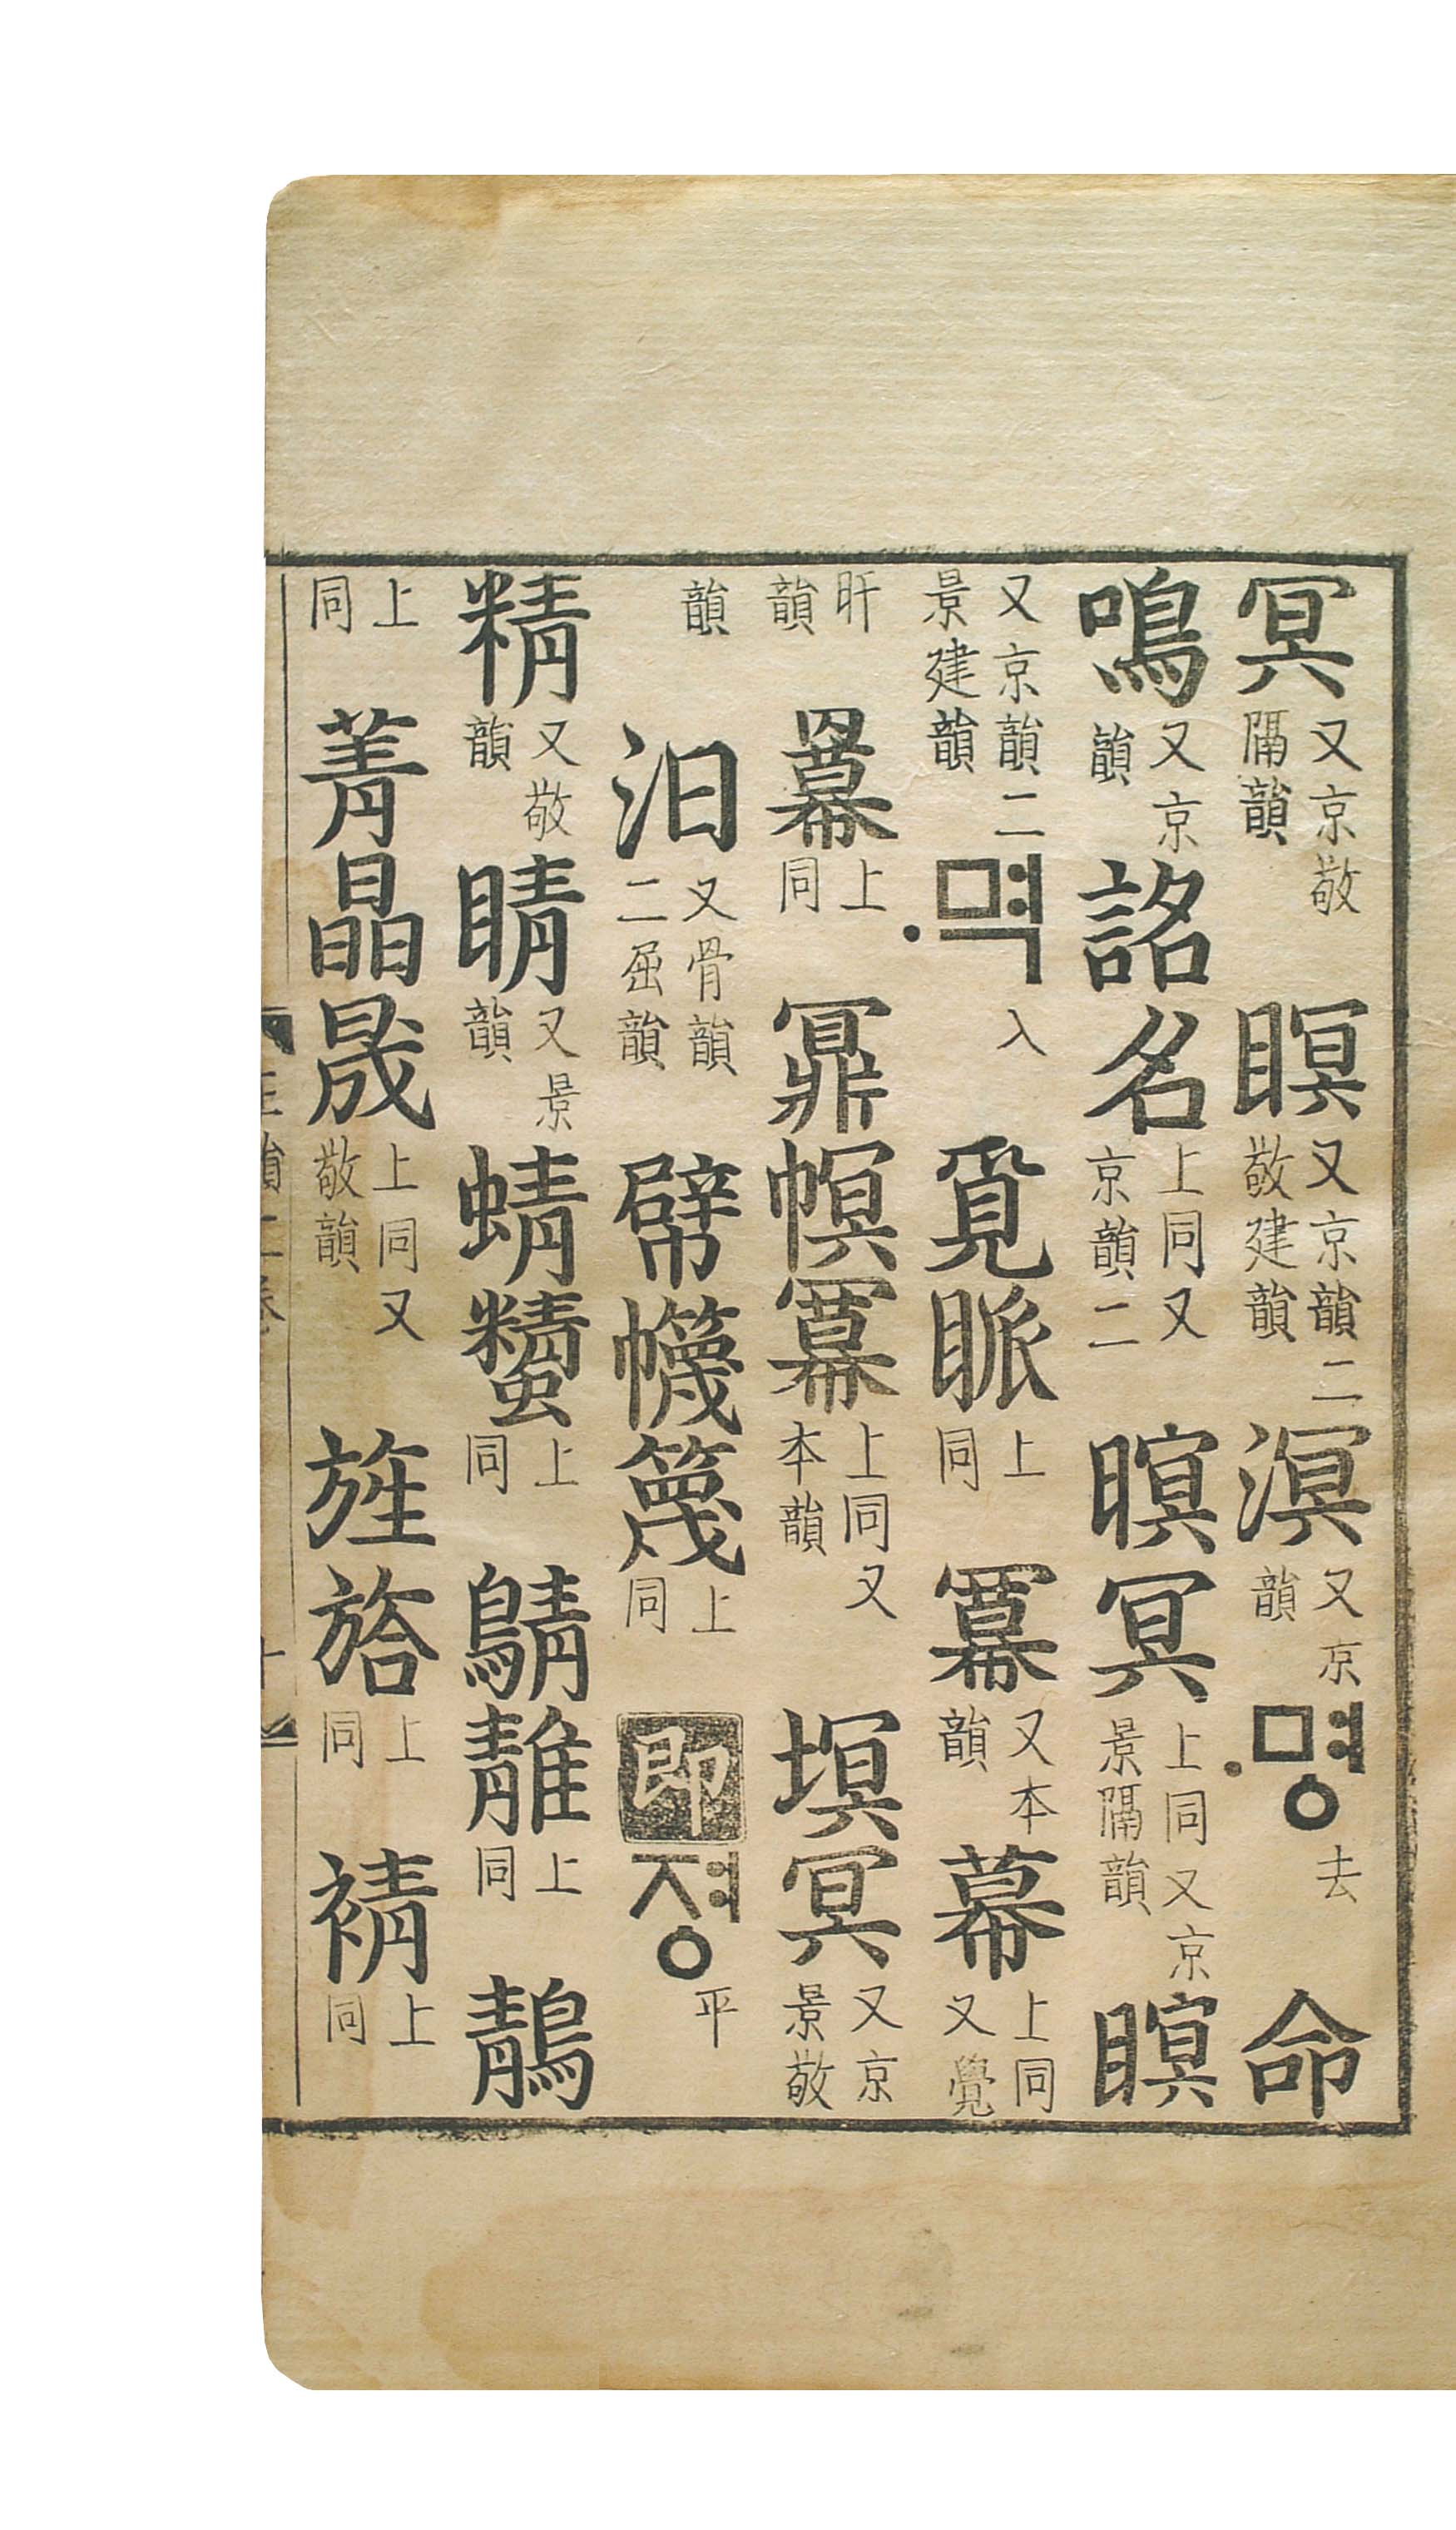 冥又京敬隔韻瞑又京韻二敬建韻溟又京韻명去命
鳴又京韻詺名上同又京韻二暝冥上同又京景隔韻瞑
又京韻二景建韻멱入覓眽上同羃又本韻幕上同又覺
旰韻幕上同鼏幎冪上同又本韻塓冥又京景敬
韻汨又骨韻二屈韻幦幭篾上同卽졍平
精又敬韻睛又景韻蜻蠽上同鶄䨝上同鶄
上同菁晶晟上同又敬韻旌㫋上同䝼上同